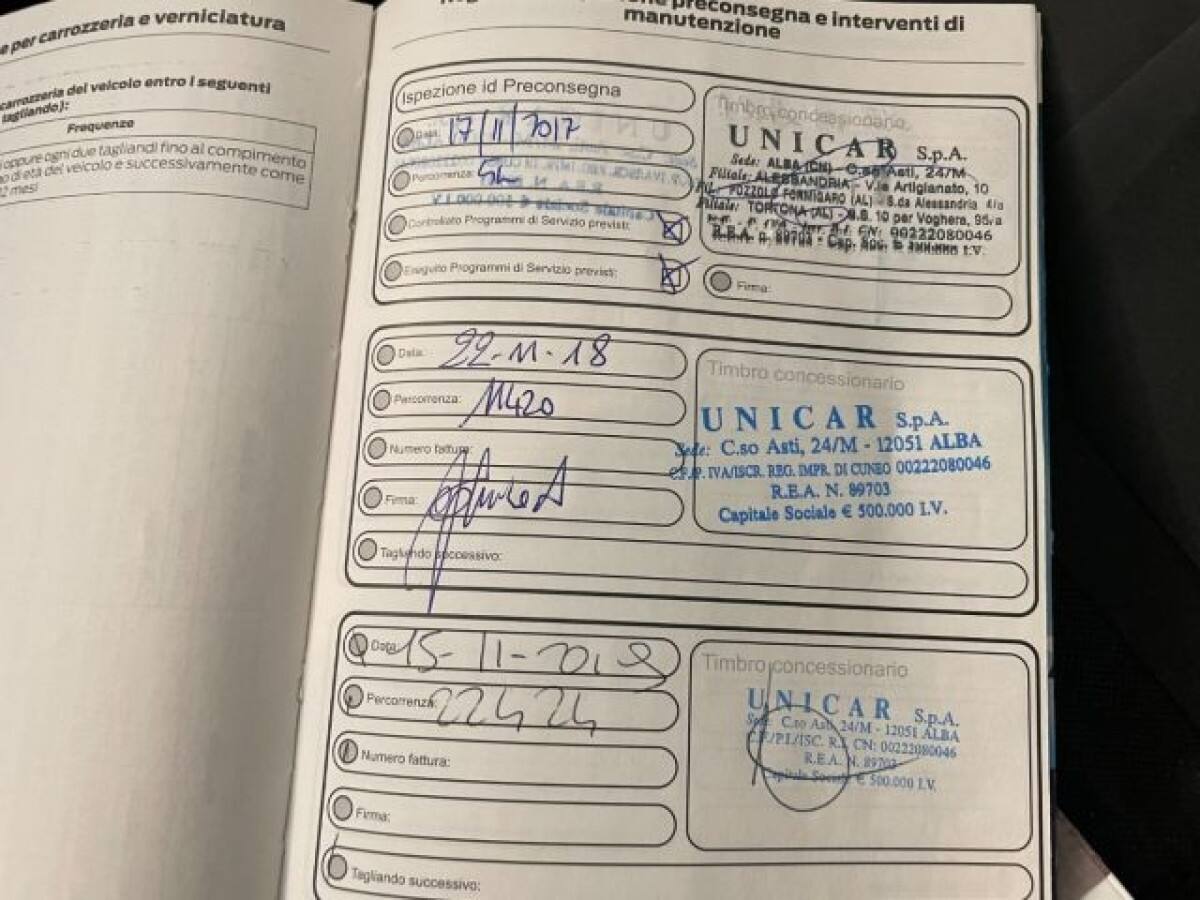 e per carrozzeria e verniciatura
carrozzeria del veicolo entro i seguenti
tagliando):
Frequenze
oppure ogni due tagliandi fino al compimento
no di età del veicolo e successivamente come
2 mesi
preconsegna e interventi di
manutenzione
Ispezione id Preconsegna
Data: 17/11/2017
Percorrenza:
Controllato Programmi di Servizio previsti:
Eseguito Programmi di Servizio previsti:
Timbro concessionario
UNICAR S.p.A.
Sede: ALBA (CN) - C.so Asti, 24/M
Filiale: ALESSANDRIA - V.le Artigianato, 10
Fil.: POZZOLO FORMIGARO (AL) - S.da Alessandria
Filiale: TORTONA (AL) - S.S. 10 per Voghera,
CN: 00222080046
R.E.A. n. 89703 - Cap. Soc. I.V.
Firma:
Data: 22-11-18
Percorrenza: 11420
Numero fattura:
Firma:
Tagliando successivo:
Timbro concessionario
UNICAR S.p.A.
Sede: C.so Asti, 24/M - 12051 ALBA
C.F.P. IVA/ISCR. REG. IMPR. DI CUNEO 00222080046
R.E.A. N. 89703
Capitale Sociale € 500.000 I.V.
Data: 15-11-2019
Percorrenza: 22424
Numero fattura:
Firma:
Tagliando successivo:
Timbro concessionario
UNICAR S.p.A.
Sede: C.so Asti, 24/M - 12051 ALBA
C.F./P.I./ISC. R.I. CN: 00222080046
R.E.A. N. 89703
Capitale Sociale € 500.000 I.V.